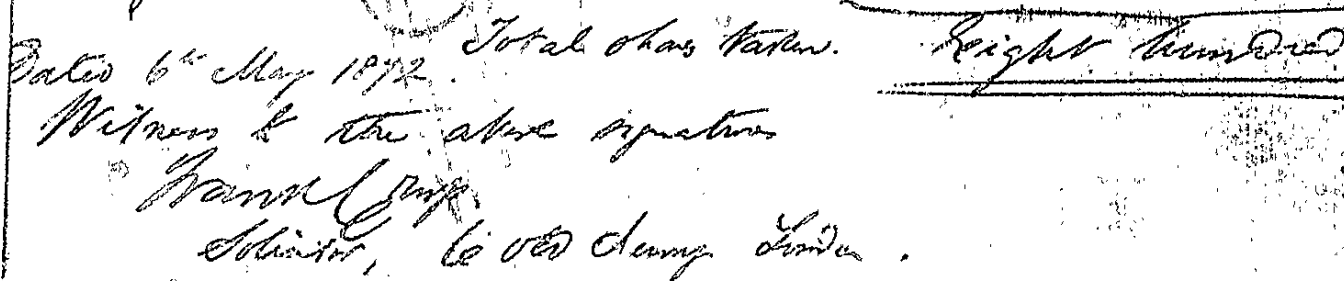 Total shares taken. Eight hundred
Dated 6th May 1872.
Witness to the above signatures
Frank Crisp
Solicitor, 6 Old Jewry London.